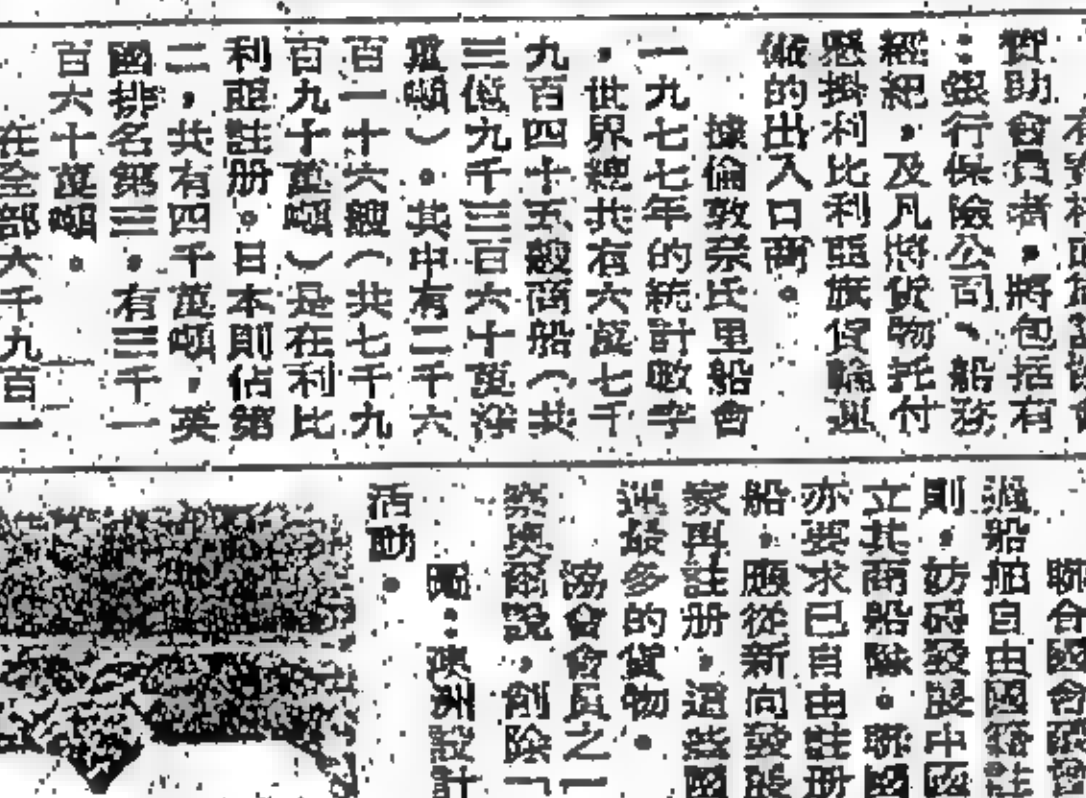 贊助會員者,將包括有
:銀行保險公司、船務
經紀,及凡將貨物托付
懸掛利比利亞旗貨輪運
儎的出入口商。
據倫敦奈氏里船會
一九七七年的統計數字
,世界總共有六萬七千
九百四十五艘商船(共
三億九千三百六十萬深
重噸)。其中有二千六
百一十六艘(共七千九
百九十萬噸)是在利比
利亞註册。日本則佔第
二,共有四千萬噸,英
國排名第三,有三千一
百六十萬噸。
在全部六千九百一
聯合國會國
過船舶自由國籍註
則,妨碍發展中國
立其商船隊。聯國
亦要求已自由註册
船,應從新向發展
家再註册,這些國
運最多的貨物。
協會會員之一
察奧爾說,剷除「
圖:澳洲設計
活動。